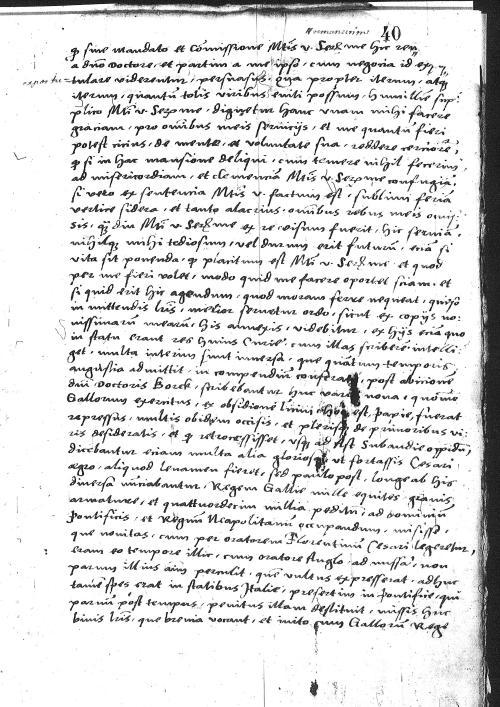 40
q sine mandato et Commissione Mtis v. Serme hic
a dno doctore, et partim a me ipso, cum negocia id ex
tulare viderentur, persuasus, Quapropter iterum, atq
iterum, quantu totis viribus eniti possum, humillie sup
plico Mti v. Serme, dignetur hanc unam mihi facere
graciam, pro omibus meis seruicijs, et me quantu fieri
potest cicius, de mente, et voluntate sua, reddere cerciore,
q si in hac mansione deliqui, cum temere nihil fecerim,
ad misericordiam, et clemenciam Mtis v. Serme confugia,
si vero ex sentencia Mtis v. factum est, sublimi feria
vertice sidera, et tanto alacrius, omibus rebus meis omis
sis, q diu Mti v. Serme ex re visum fuerit, hic seruia,
nihilq mihi tediosum, vel durum erit futuru, eciam si
vita sit ponenda, q placitum est Mti v. Serme et quod
per me fieri volet, modo quid me facere oporteat sciam, et
si quid erit hic agendum, quod moram ferre nequeat, quiso
in mittendis lris, melior seruetur ordo, sicut ex copijs no
uissimaru mearu, his annexis, videbitur, ex hijs ecia quo
in statu erant res huius Curie, cum illas scriberem intelli
get, multa interim sunt inuersa, que quatum temporis
angustia admittit, in compendiu conferam, post abicione
dni Doctoris Borek, scribebantur huc varia noua, quomo
Gallorum exercitus, ex obsidione Papie, fuerat
repressus, multis obidem occisis, et plerisq de primoribus vi
ris desideratis, et q retrocessisset, usq ad Ast Subaudie oppidu,
dicebantur eciam multa alia gloriose, ut fortassis Cesari
egro, aliquod leuamen fieret, sed paulo post, longe ab his
diuersa nunciabantur, Regem Gallie mille equites grauis
armature, et quattuordecim millia peditu, ad dominiu
Pontificis, et Regnu Neapolitanu occupandum, misisse,
que nouitas, cum per oratorem Florentinu Cesari legeretur,
eram eo tempore illic, cum oratore Anglo ad missa, non
parum illius aim perculit, que vultus expresserat, adhuc
tamen spes erat in statibus Italie, presertim in Pontifice, qui
parum post tempus, penitus illam destituit, missis huc
binis lris, que breuia vocant, et inito cum Galloru Rege